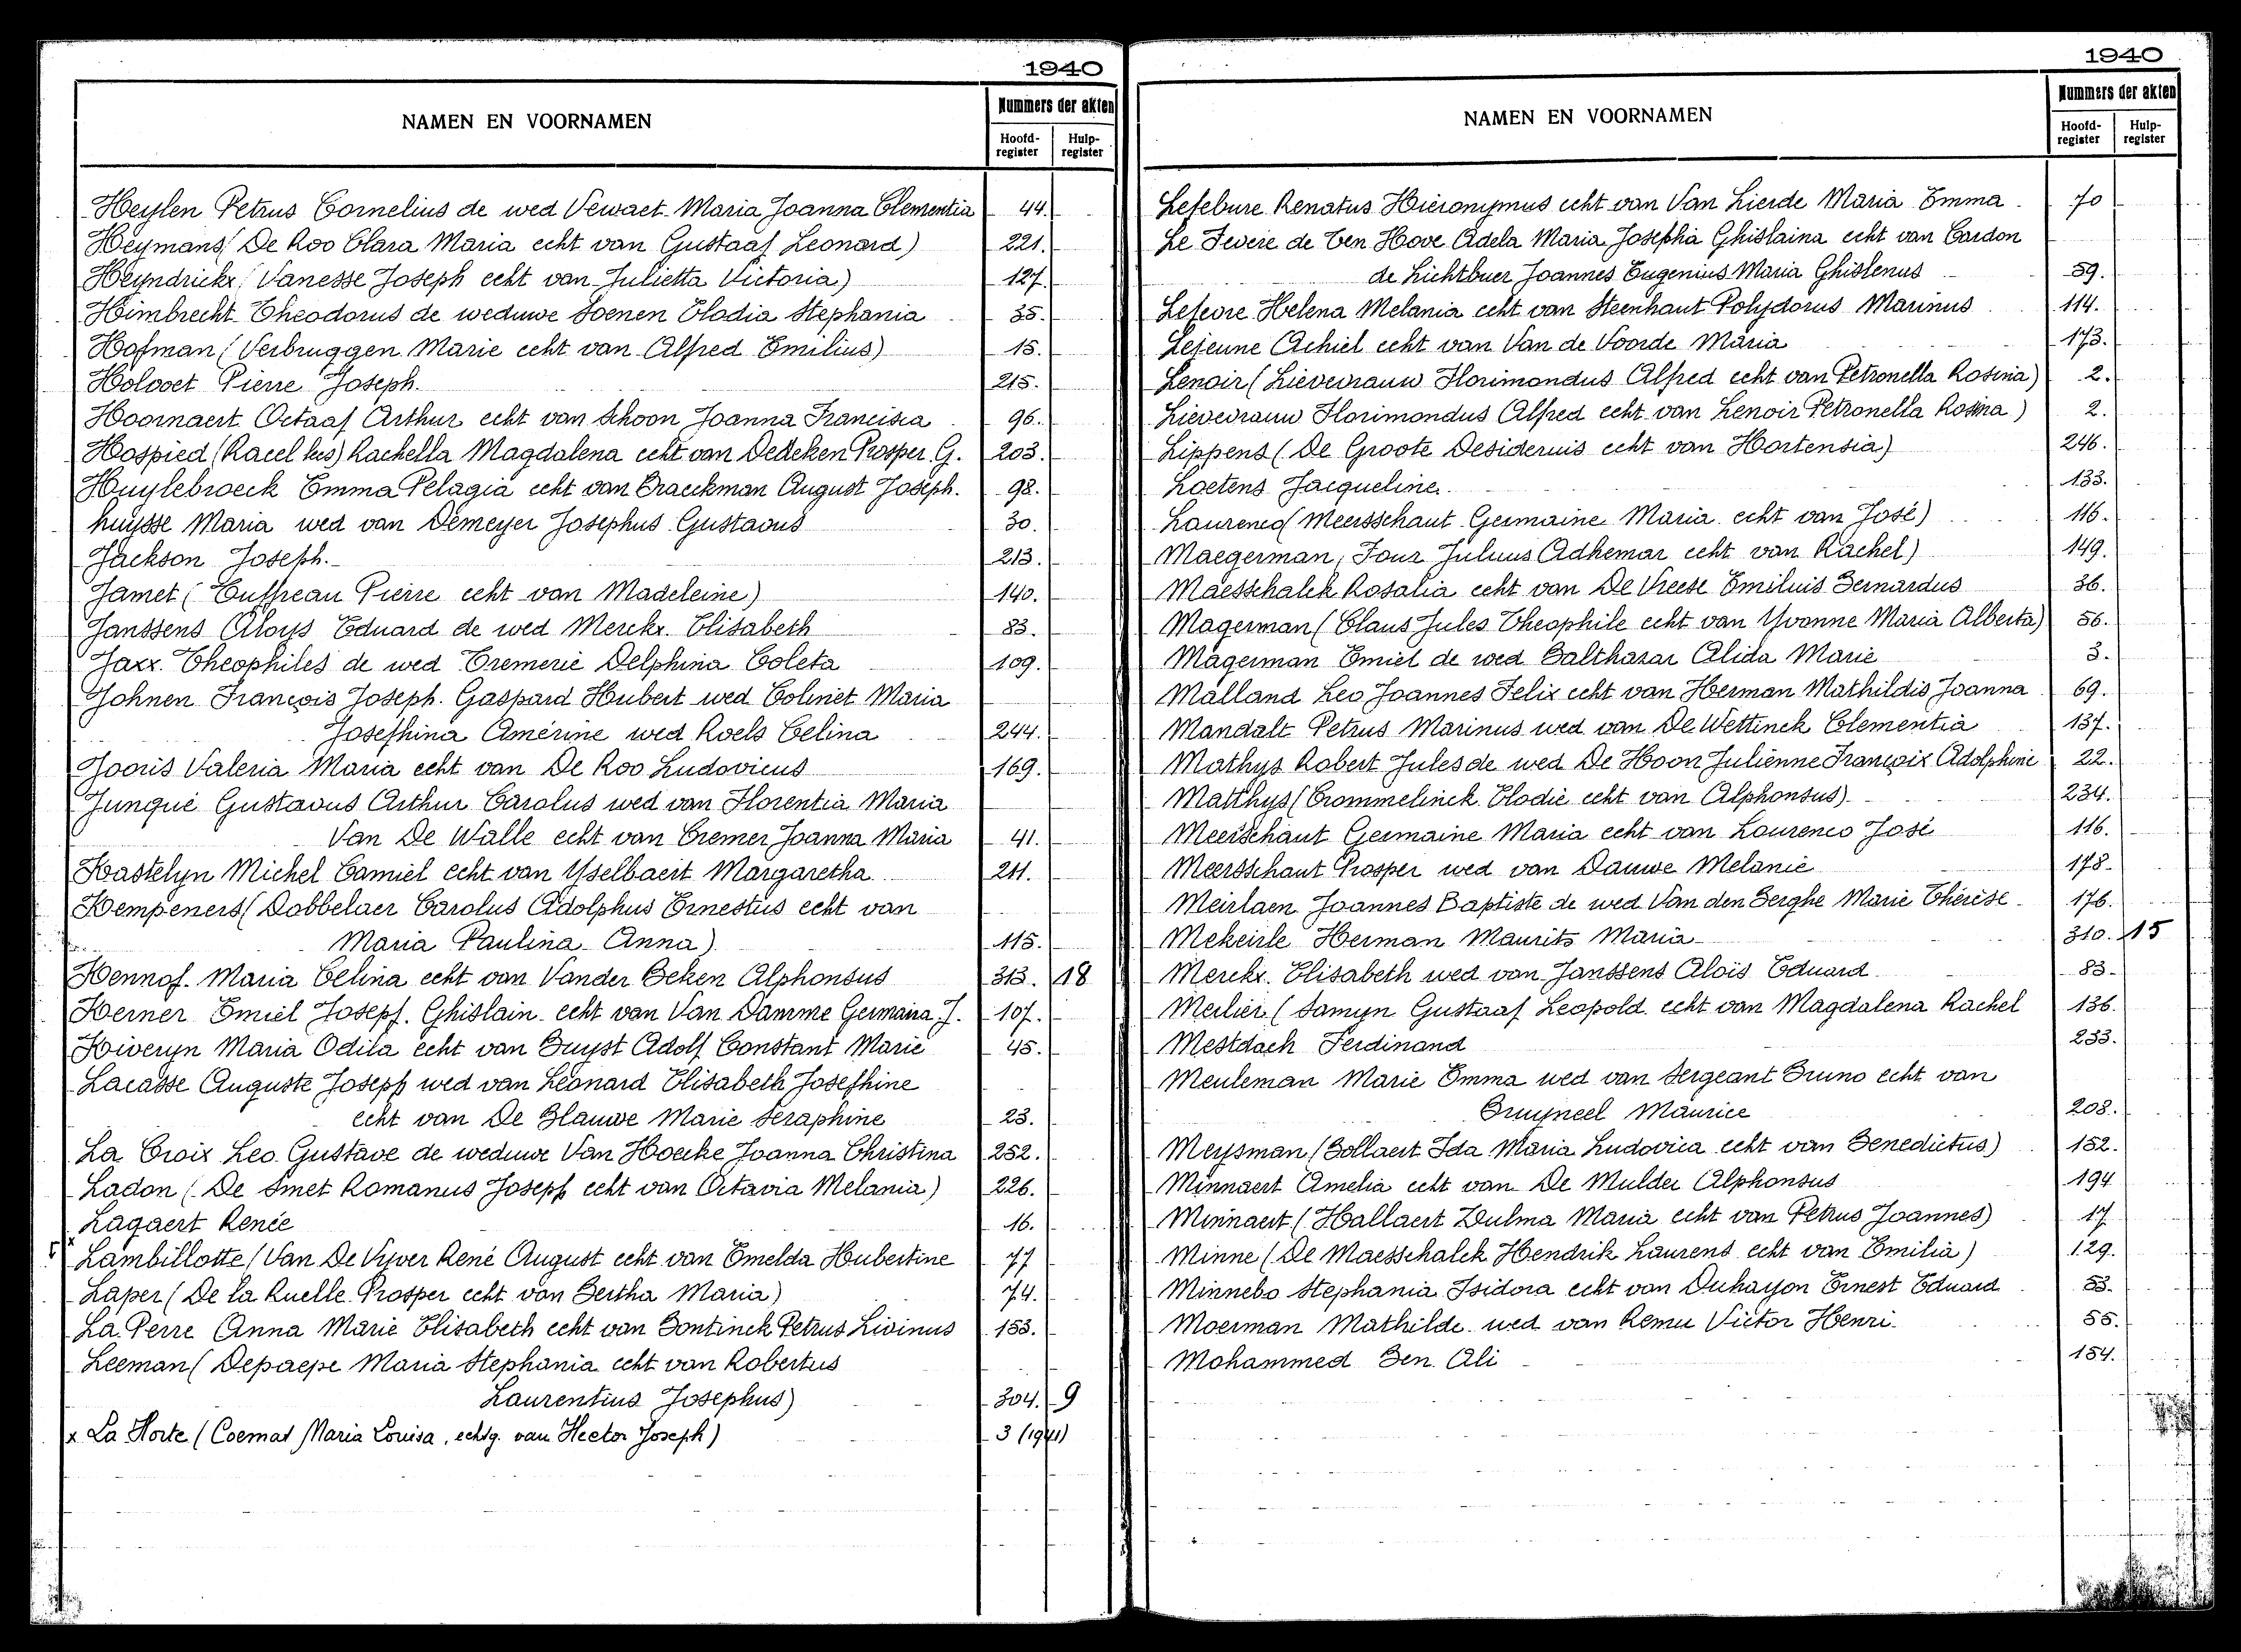 1940
NAMEN EN VOORNAMEN
Nummers der akten
Hoofd-register Hulp-register
Heylen Petrus Cornelius de wed Vewaet Maria Joanna Clementia 44.
Heymans (De Roo Clara Maria echt van Gustaaf Leonard) 221.
Heyndrickx (Vanesse Joseph echt van Julietta Victoria) 127.
Himbrecht Theodorus de weduwe Soenen Elodia Stephania 35.
Hofman (Verbruggen Marie echt van Alfred Emilius) 15.
Holvoet Pierre Joseph. 215.
Hoornaert Octaaf Arthur echt van Schoon Joanna Francisca 96.
Hospied (Racel les) Rachella Magdalena echt van Dedeken Prosper G. 203.
Huylebroeck Emma Pelagia echt van Braeckman August Joseph. 98.
huysse Maria wed van Demeyer Josephus Gustavus 30.
Jackson Joseph. 213.
Jamet (Euffreau Pierre echt van Madeleine) 140.
Janssens Aloys Eduard de wed Merckx. Elisabeth 83.
Jaxx. Theophiles de wed Cremerie Delphina Coleta 109.
Johnen François Joseph. Gaspard Hubert wed Colinet Maria
Josephina Amérine wed Roels Celina 244.
Jooris Valeria Maria echt van De Roo Ludovicus 169.
Junqué Gustavus Arthur Carolus wed van Florentia Maria
Van De Walle echt van Cremer Joanna Maria 41.
Kastelyn Michel Camiel echt van Yselbaert Margaretha 211.
Kempeners (Dobbelaer Carolus Adolphus Ernestus echt van
Maria Paulina Anna) 115.
Kennof. Maria Celina echt van Vander Beken Alphonsus 313. 18
Kerner Emiel Joseph. Ghislain echt van Van Damme Germaina J. 107.
Kiweryn Maria Odila echt van Buyst Adolf Constant Marie 45.
Lacasse Auguste Joseph wed van Léonard Elisabeth Josephine
echt van De Blauwe Marie Seraphine 23.
La Croix Leo Gustave de weduwe Van Hoecke Joanna Christina 252.
Ladon (De Smet Romanus Joseph echt van Octavia Melania) 226.
Lagaert Renée 16.
x Lambillotte (Van De Vyver René August echt van Emelda Hubertine 77
Laper (De la Ruelle Prosper echt van Bertha Maria) 74.
La Perre Anna Marie Elisabeth echt van Bontinck Petrus Livinus 153.
Leeman (Depaepe Maria Stephania echt van Robertus
Laurentius Josephus) 304. 9
x La Horte (Coemat Maria Louisa, echtg. van Hector Joseph) 3 (1941)
1940
NAMEN EN VOORNAMEN
Nummers der akten
Hoofd-register Hulp-register
Lefebure Renatus Hieronymus echt van Van Lierde Maria Emma 70
Le Fevere de Ten Hove Adela Maria Josepha Ghislaina echt van Cardon
de Lichtbuer Joannes Eugenius Maria Ghislenus 59.
Lefevre Helena Melania echt van Steenhaut Polydorus Marinus 114.
Lejeune Achiel echt van Van de Voorde Maria 173.
Lenoir (Lievevrauw Florimondus Alfred echt van Petronella Rosina) 2.
Lievevrauw Florimondus Alfred echt van Lenoir Petronella Rosina) 2.
Lippens (De Groote Desiderius echt van Hortensia) 246.
Loetens Jacqueline. 133.
Laurenco (Meersschaut Germaine Maria echt van José) 116.
Maegerman, Four Julius Adhemar echt van Rachel) 149.
Maesschalck Rosalia echt van De Vreese Emilius Bernardus 36.
Magerman (Claus Jules Theophile echt van Yvonne Maria Alberta) 56.
Magerman Emiel de wed Balthazar Alida Marie 3.
Malland Leo Joannes Felix echt van Herman Mathildis Joanna 69.
Mandalt Petrus Marinus wed van De Wettinck Clementia 137.
Mathys Robert Jules de wed De Hoon Julienne François Adolphine 22.
Matthys (Crommelinck Elodie echt van Alphonsus) 234.
Meerschaut Germaine Maria echt van Lourenco José 116.
Meersschaut Prosper wed van Dauwe Melanie 178.
Meirlaen Joannes Baptiste de wed Van den Berghe Marie Thérèse 176.
Mekeirle Herman Maurits Maria 310. 15
Merckx. Elisabeth wed van Janssens Aloïs Eduard 83.
Merlier (Samyn Gustaaf Leopold echt van Magdalena Rachel 136.
Mestdach Ferdinand 233.
Meuleman Marie Emma wed van Sergeant Bruno echt van
Bruyneel Maurice 208.
Meysman (Bollaert Ida Maria Ludovica echt van Benedictus) 152.
Minnaert Amelia echt van De Mulder Alphonsus 194
Minnaert (Hallaert Zulma Maria echt van Petrus Joannes) 17
Minne (De Maesschalck Hendrik Laurens echt van Emilia) 129.
Minnebo Stephania Isidora echt van Duhayon Ernest Eduard 53.
Moerman Mathilde wed van Remu Victor Henri. 55.
Mohammed Ben. Ali 154.